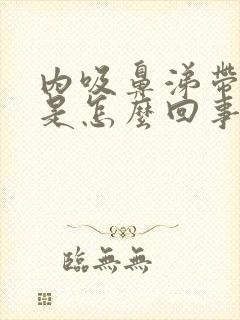 內吸鼻涕帶
是怎麼回事
臨無無